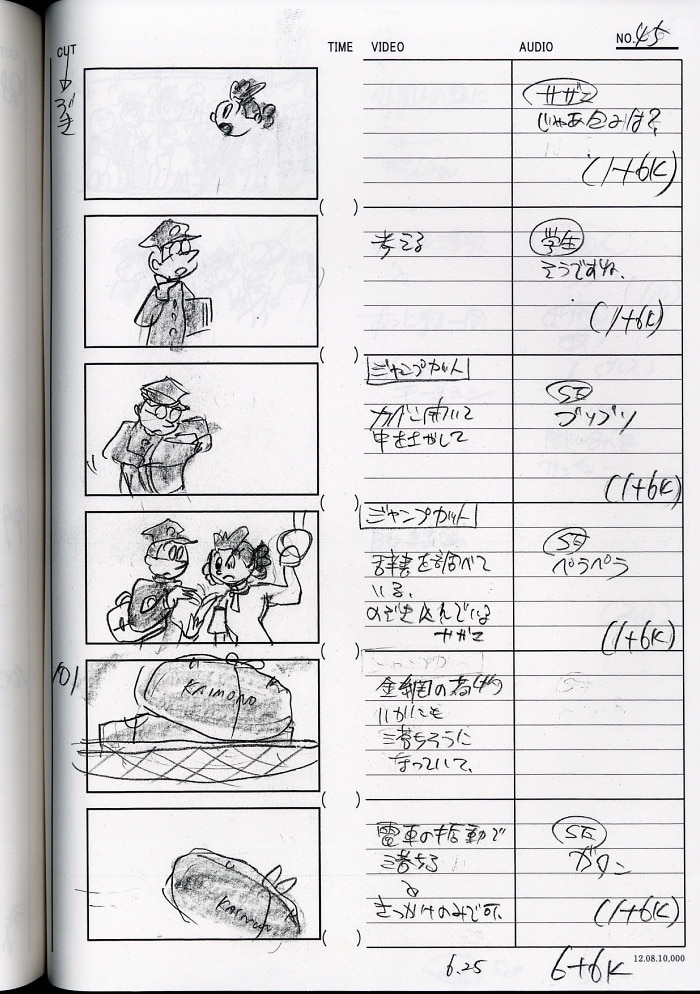 NO. 45
CUT TIME VIDEO AUDIO
つづき
サザエ
じゃあ
(1+6K)
考える
学生
そうですね、
(1+6K)
ジャンプカット
カバン開いて
中を
SE
(1+6K)
ジャンプカット
辞書を調べて
いる。
のぞき込んでいる
サザエ
SE
ペラペラ
(1+6K)
101
KAIMONO
金網の荷物
いかにも
落ちそうに
なっていて、
KAIMONO
電車の振動で
落ちる
きっかけのみで可、
SE
ガタン
(1+6K)
6.25
6+6K
12.08.10,000